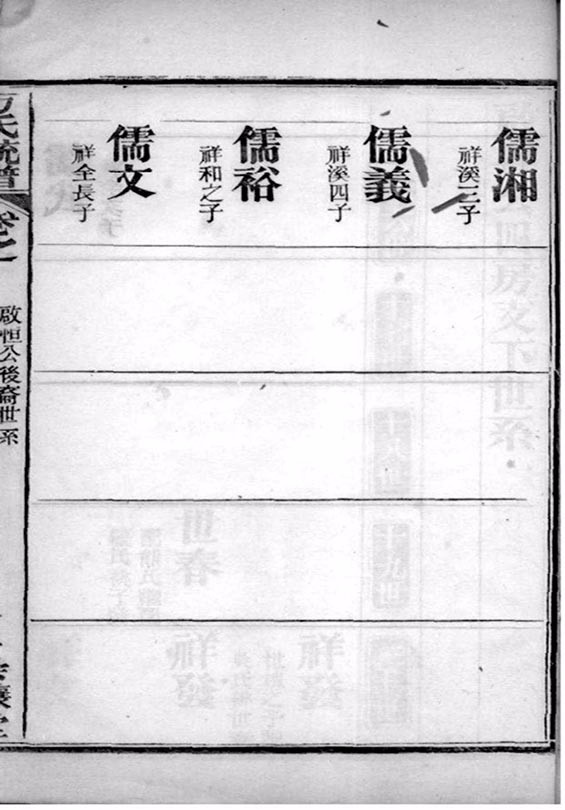 儒湘
祥溪三子
儒義
祥溪四子
儒裕
祥和之子
儒文
祥全長子
氏統譜
卷之
啟恒公後裔世系